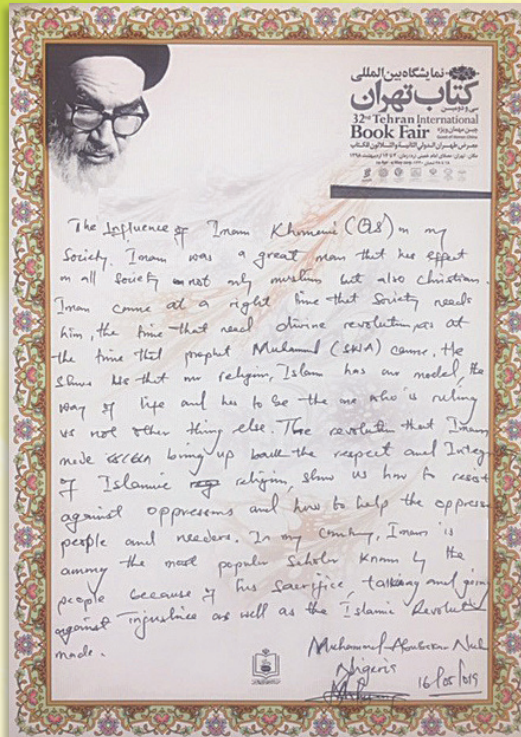 نمایشگاه بین‌المللی
کتاب تهران
سی و دومین
32nd Tehran International
Book Fair
چین مهمان ویژه
Guest of Honor: China
معرض طهران الدولي الثانية والثلاثون للكتاب
The Influence of Imam Khomeini (QS) in my
Society. Imam was a great man that has effect
in all society not only muslim but also christian.
Iman came at a right time that Society needs
him, the time that need divine revolution, as at
the time that prophet Muhammad (SWA) came. He
shows us that our religion, Islam has our model, the
way of life and has to be the one who is ruling
us not other thing else. The revolution that Imam
made bring up back the respect and Integ
of Islamic religion, show us how to resist
against oppressors and how to help the oppress
people and needers. In my country, Imam is
among the most popular scholar known by the
people because of his sacrifice, talking and going
against Injustice as well as the Islamic Revolution
made.
Muhammad Abubakar
Nigeria
16/05/019